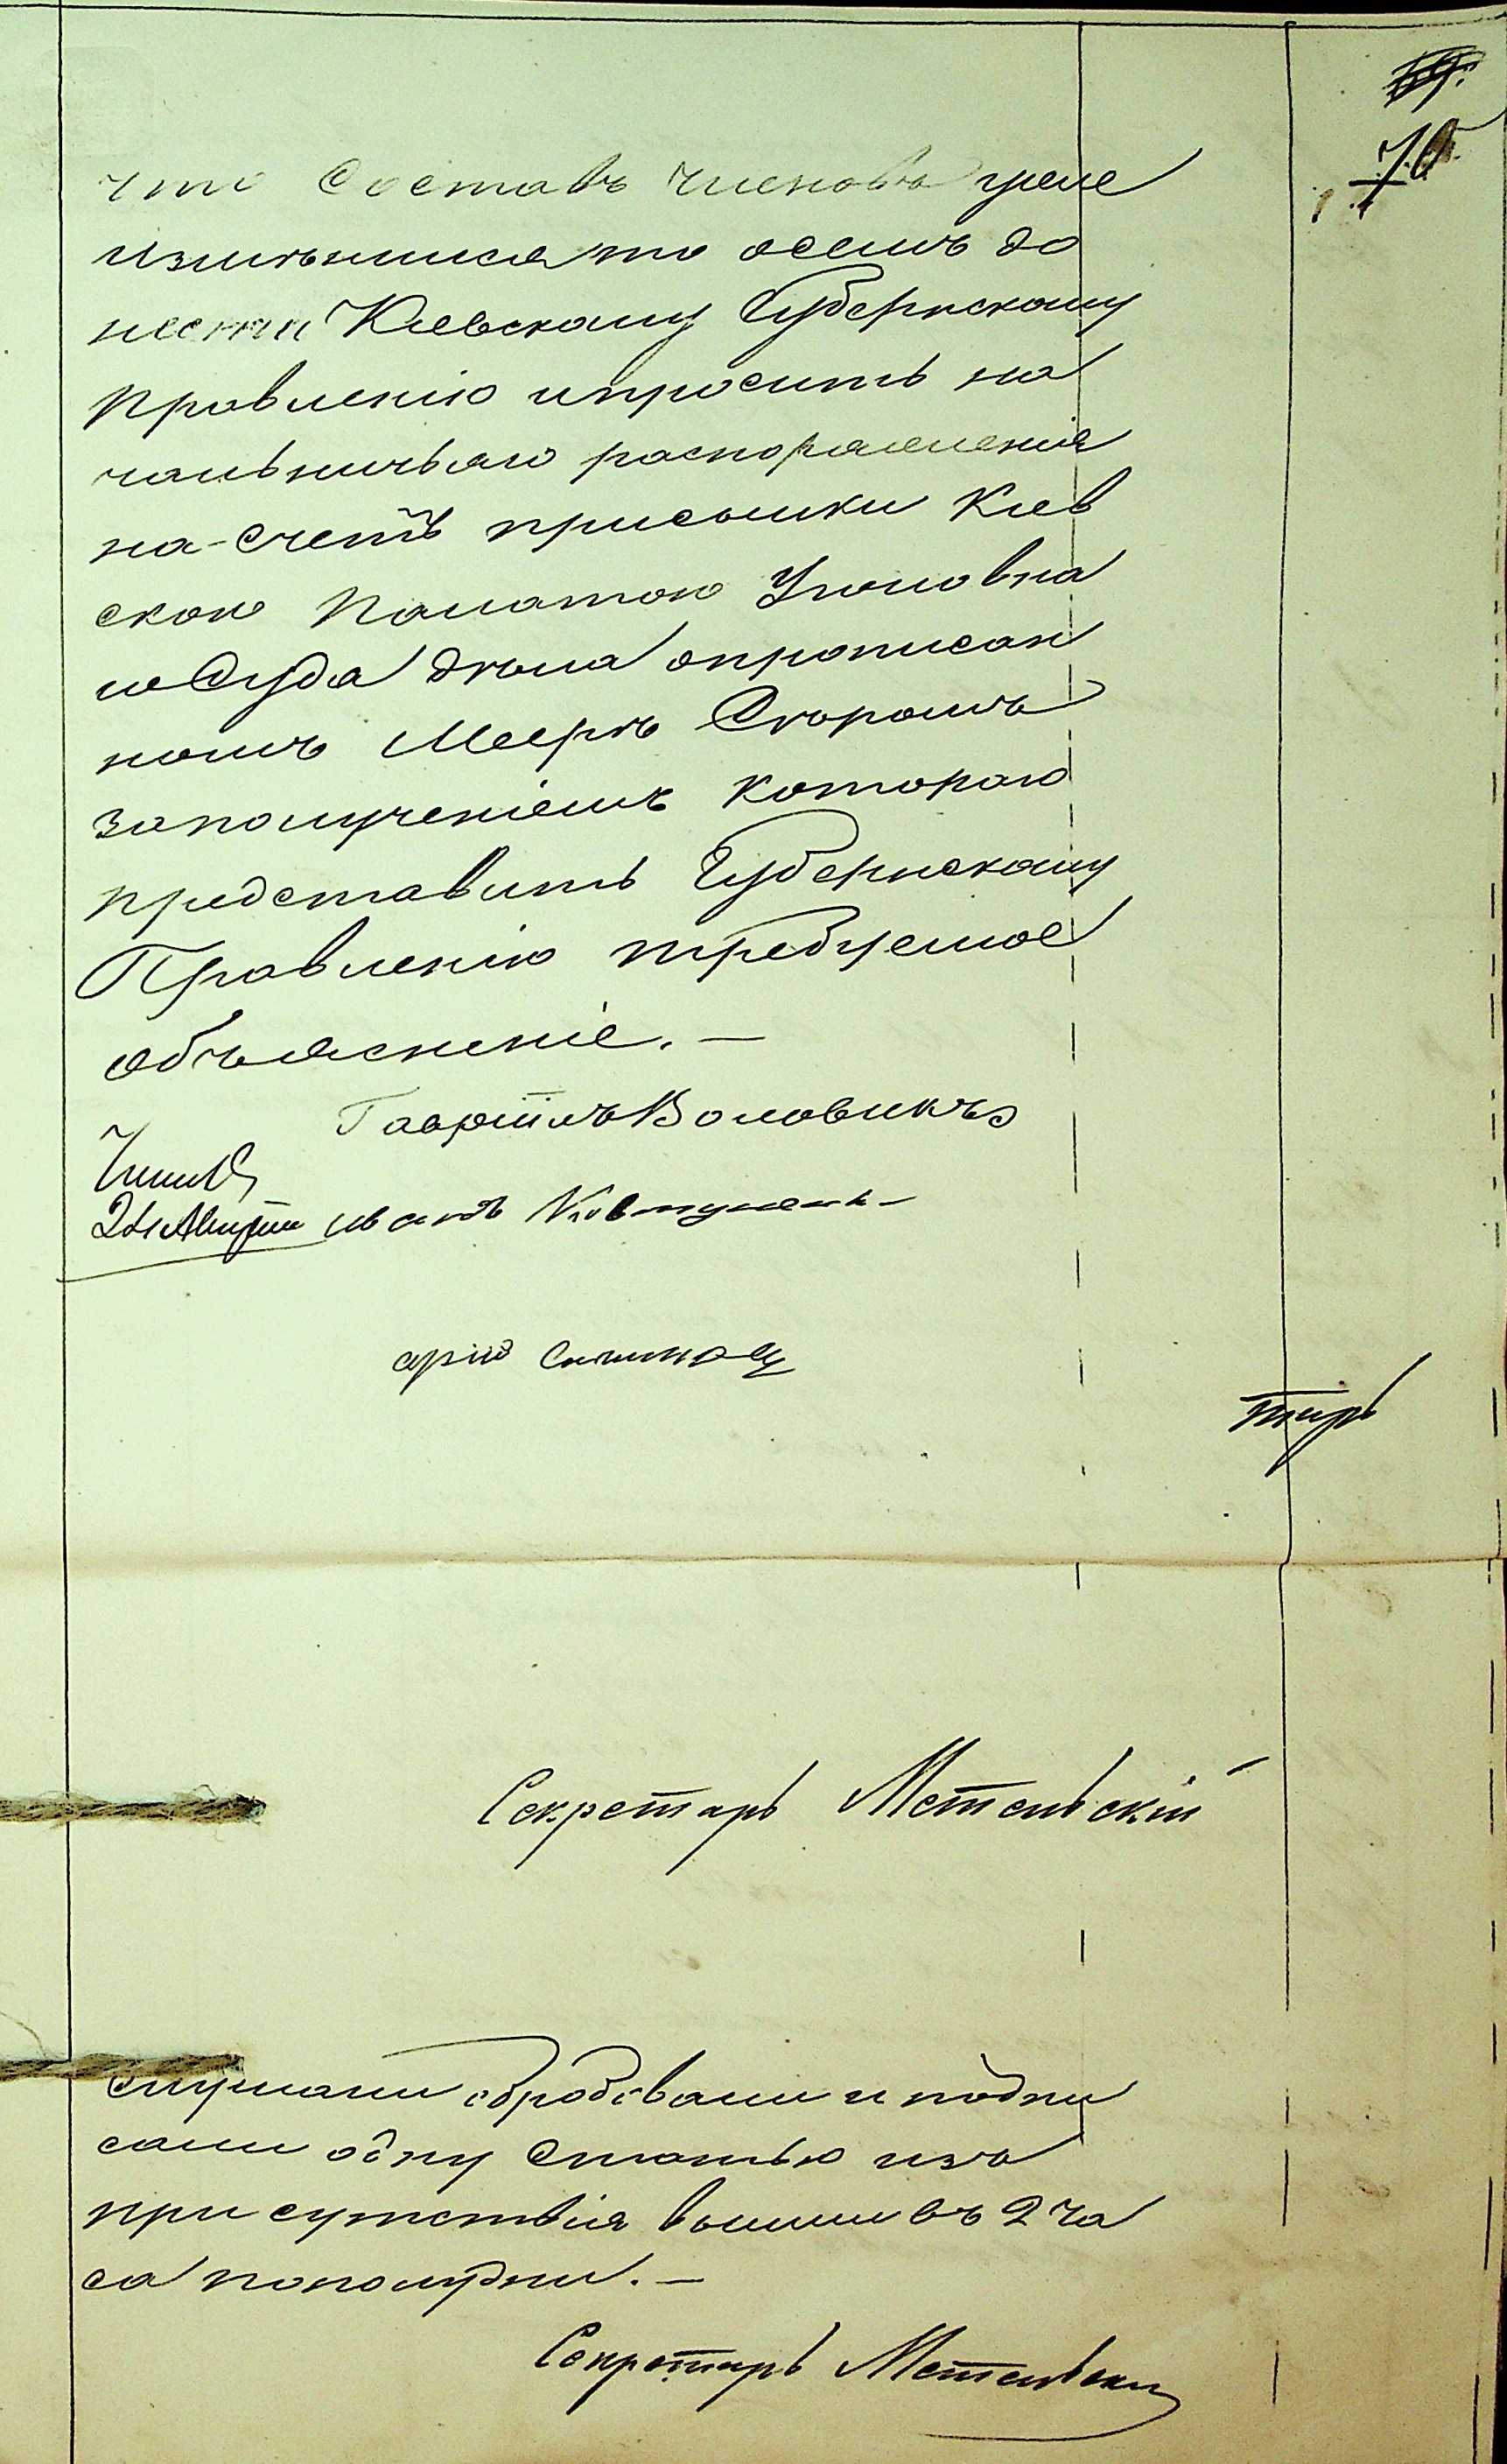 70
что составъ членовъ уже
изменился то о семъ до
нести Киевскому Губернскому
Правленію и просить на
чальничьяго распоряженія
на-счетъ присылки Киев
скою Палатою Уголовна
го Суда дѣла опрописан
номъ Меерѣ Скоромъ
заполученіемъ котораго
представить Губернскому
Правленію требуемое
объясненіе. —
Гавріилъ Воловикъ
24 Августа Иванъ Ковтуненъ
Секретарь Метельскій
слушали и подпи
сали одну статью изъ
присутствія вышли въ 2 ча
са пополудни. —
Секретарь Метельскій